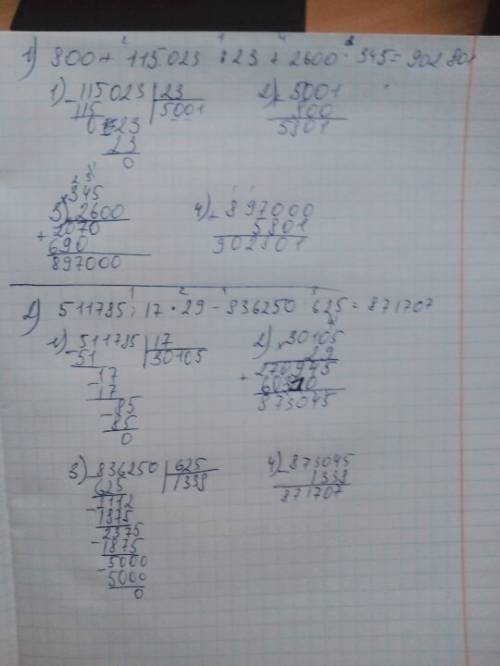 1) 800 + 115023 : 23 + 2600 · 345 = 902801
1) 115023 | 23
115 5001
023
23
0
2) 5001
+ 800
5801
3) 345
× 2600
+ 2070
690
897000
4) + 897000
5801
902801
2) 511785 : 17 · 29 - 836250 : 625 = 871707
1) 511785 | 17
- 51 30105
17
- 17
85
- 85
0
2) × 30105
29
+ 270945
60210
873045
3) 836250 | 625
- 625 1338
2112
- 1875
2375
- 1875
5000
- 5000
0
4) - 873045
1338
871707